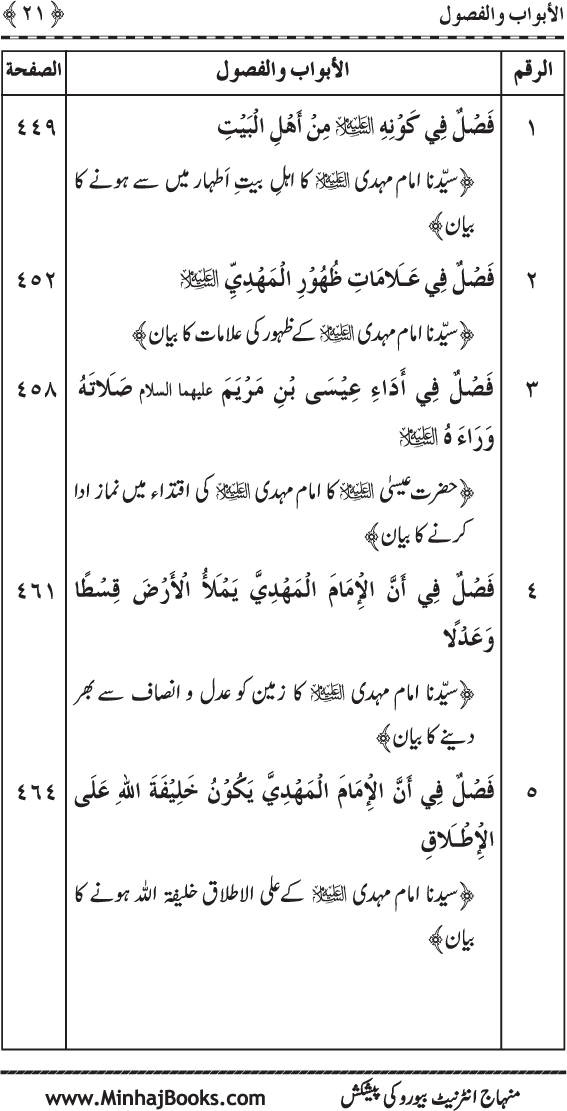 الأبواب والفصول ﴿٢١﴾
الرقم الأبواب والفصول الصفحة
١ فَصْلٌ فِي كَوْنِهِ عليه السلام مِنْ أَهْلِ الْبَيْتِ ٤٤٩
﴿سیّدنا امام مہدی علیہ السلام کا اہلِ بیتِ اَطہار میں سے ہونے کا
بیان﴾
٢ فَصْلٌ فِي عَلَامَاتِ ظُهُوْرِ الْمَهْدِيِّ عليه السلام ٤٥٢
﴿سیّدنا امام مہدی علیہ السلام کے ظہور کی علامات کا بیان﴾
٣ فَصْلٌ فِي أَدَاءِ عِيْسَى بْنِ مَرْيَمَ عليهما السلام صَلَاتَهُ ٤٥٨
وَرَاءَهُ عليه السلام
﴿حضرت عیسیٰ علیہ السلام کا امام مہدی علیہ السلام کی اقتداء میں نماز ادا
کرنے کا بیان﴾
٤ فَصْلٌ فِي أَنَّ الْإِمَامَ الْمَهْدِيَّ يَمْلَأُ الْأَرْضَ قِسْطًا ٤٦١
وَعَدْلًا
﴿سیّدنا امام مہدی علیہ السلام کا زمین کو عدل و انصاف سے بھر
دینے کا بیان﴾
٥ فَصْلٌ فِي أَنَّ الْإِمَامَ الْمَهْدِيَّ يَكُوْنُ خَلِيْفَةَ اللهِ عَلَى ٤٦٤
الْإِطْلَاقِ
﴿سیدنا امام مہدی علیہ السلام کے علی الاطلاق خلیفۃ اللہ ہونے کا
بیان﴾
منہاج انٹرنیٹ بیورو کی پیشکش www.MinhajBooks.com